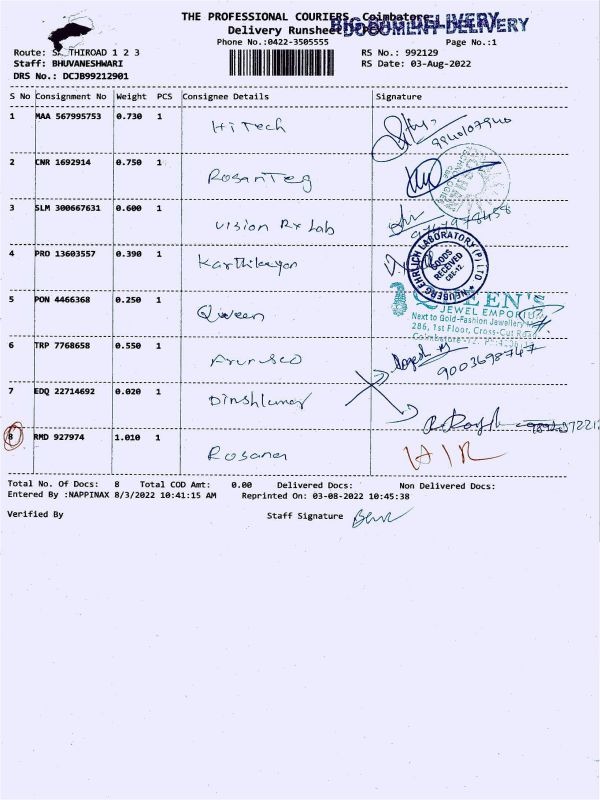 THE PROFESSIONAL COURIERS, Coimbatore
Delivery Runsheet
DOCUMENT DELIVERY
Phone No.:0422-3505555 Page No.:1
Route: THIROAD 1 2 3 RS No.: 992129
Staff: BHUVANESHWARI RS Date: 03-Aug-2022
DRS No.: DCJB99212901
S No Consignment No Weight PCS Consignee Details Signature
1 MAA 567995753 0.730 1 HiTech
2 CNR 1692914 0.750 1
3 SLM 300667631 0.600 1 Vision Rx Lab
NEUBERG EHRLICH LABORATORY (P) LTD
GOODS RECEIVED
CBE-12
4 PRO 13603557 0.390 1 Karthikeyan
QUEEN'S
JEWEL EMPORIUM
Next to Gold-Fashion Jewellery
286, 1st Floor, Cross-Cut Road
Coimbatore
5 PON 4466368 0.250 1 Queen
6 TRP 7768658 0.550 1
9003698747
7 EDQ 22714692 0.020 1
8 RMD 927974 1.010 1
Total No. Of Docs: 8 Total COD Amt: 0.00 Delivered Docs: Non Delivered Docs:
Entered By :NAPPINAX 8/3/2022 10:41:15 AM Reprinted On: 03-08-2022 10:45:38
Verified By Staff Signature